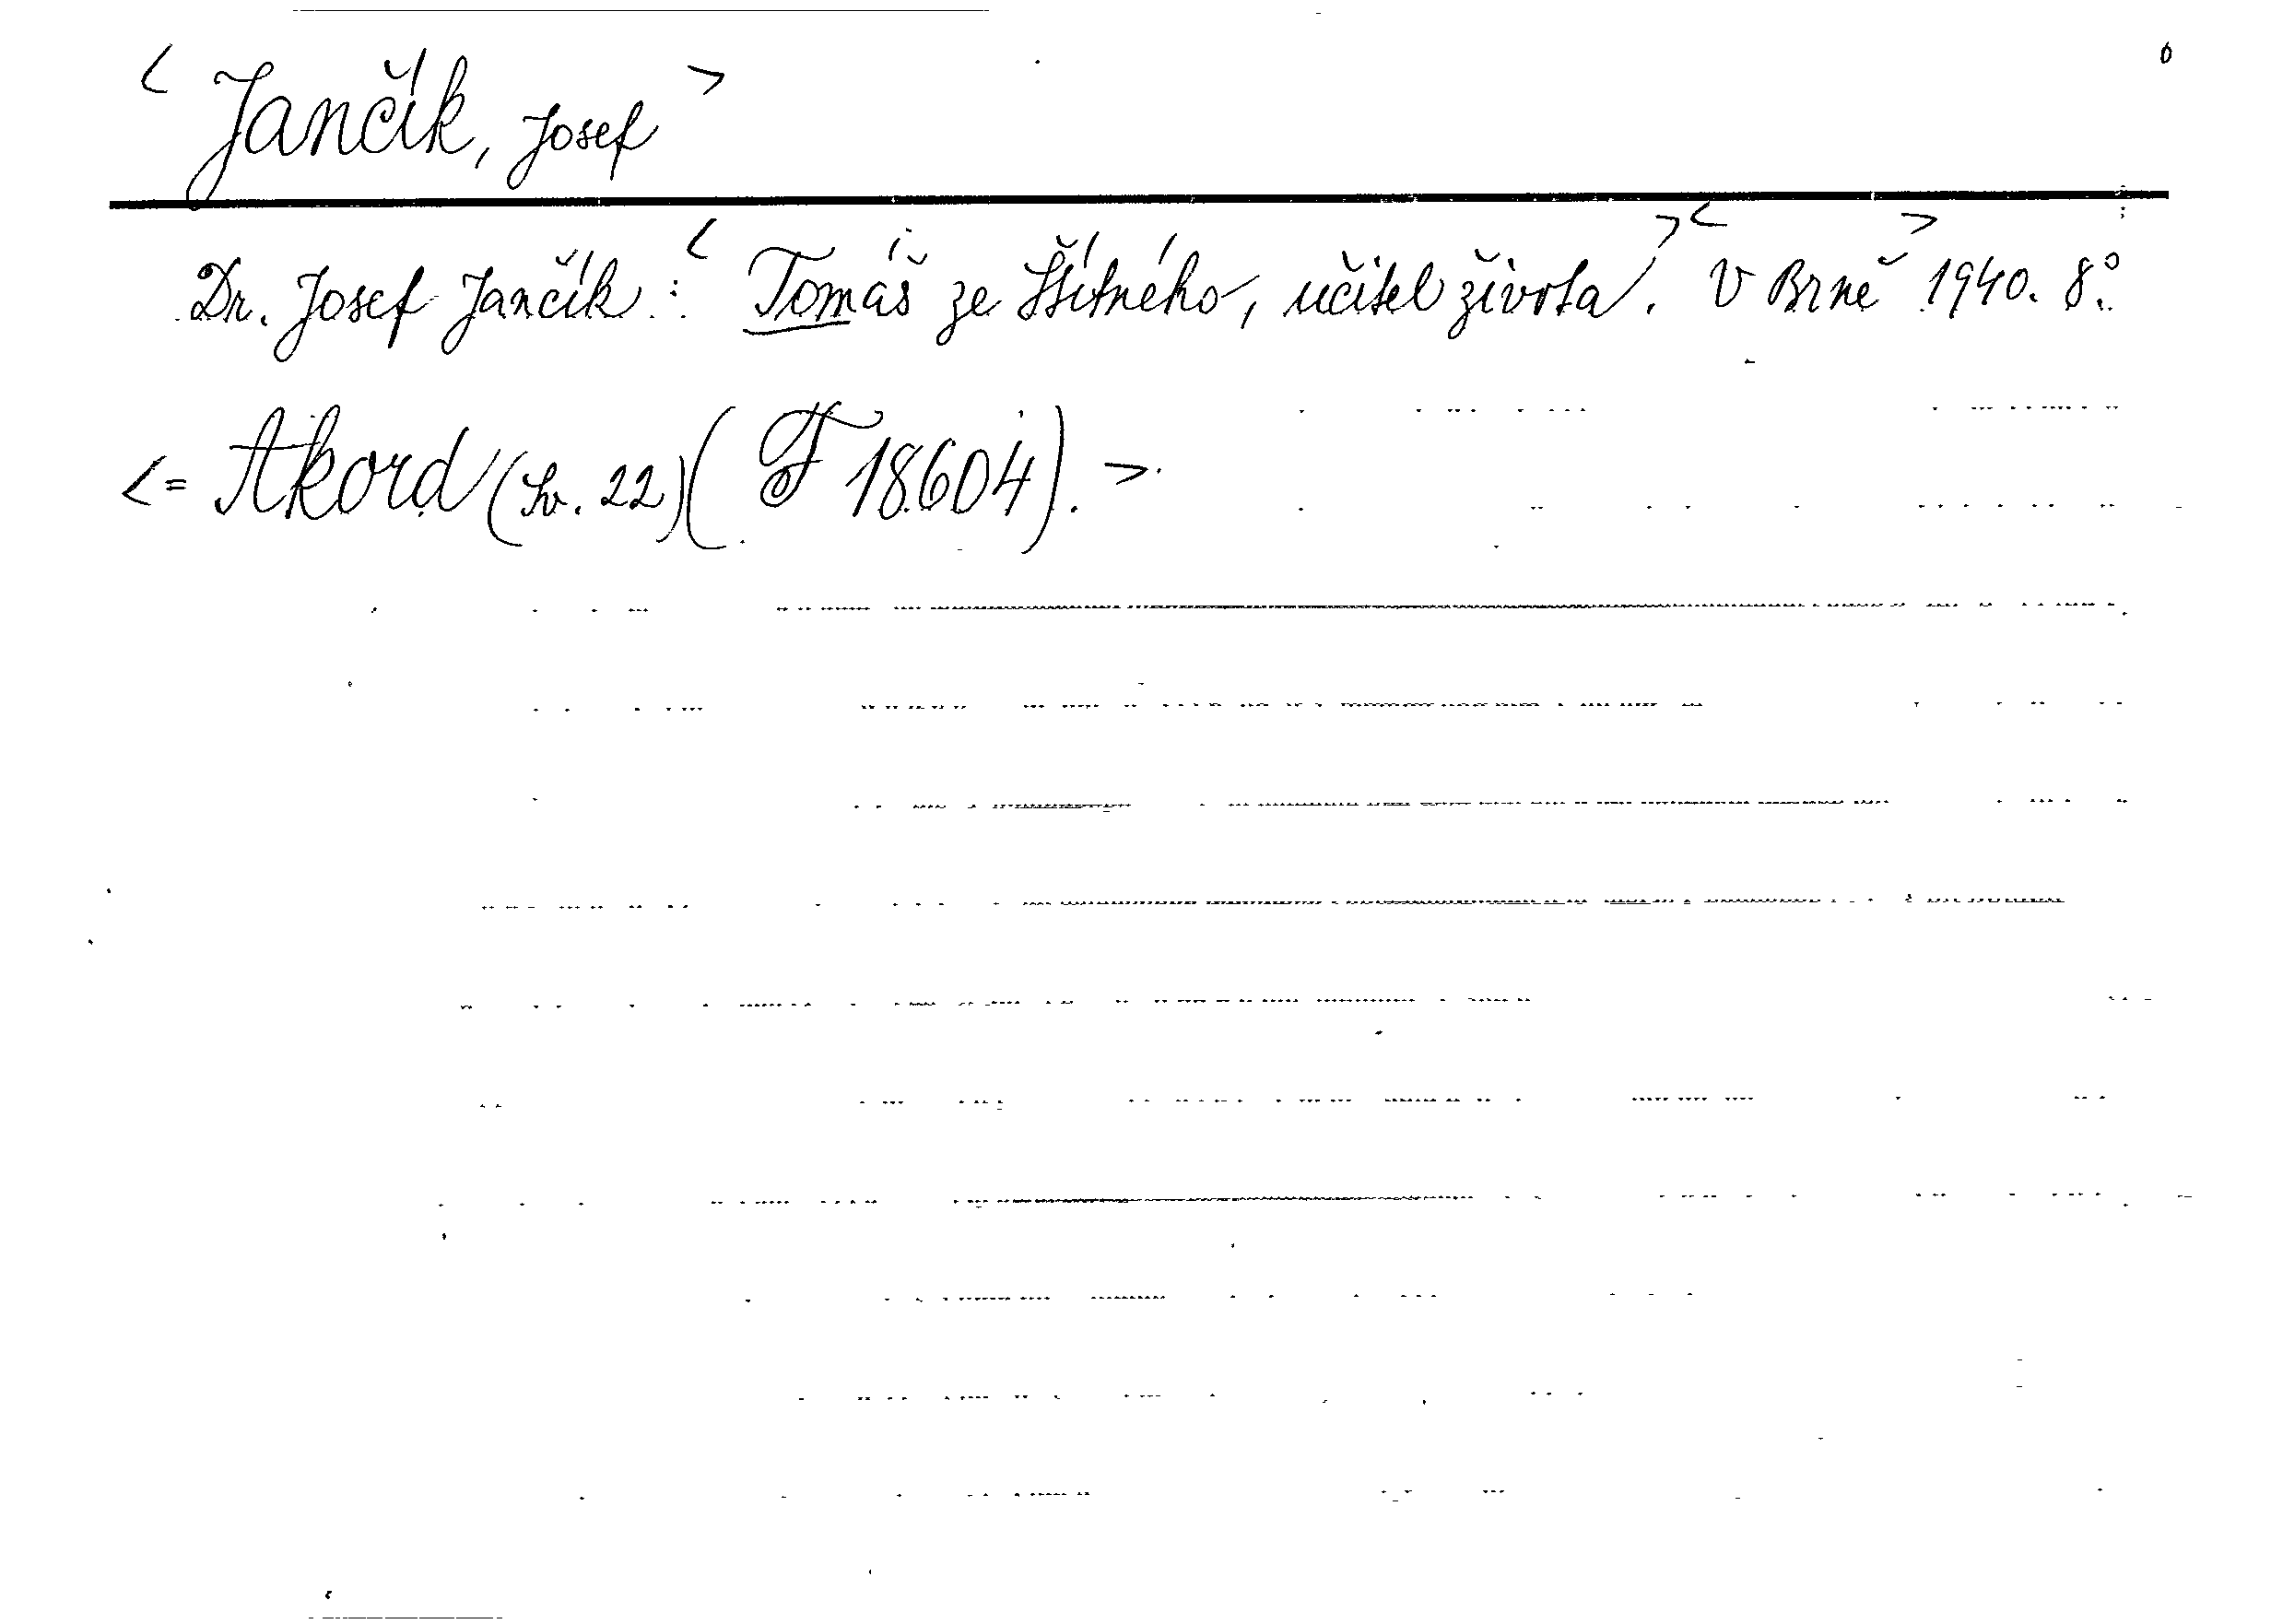 < Jančík, Josef >
Dr. Josef Jančík: < Tomáš ze Štítného, učitel života. > < V Brně > 1940. 8.°
< = Akord (sv. 22) ( F 18604). >